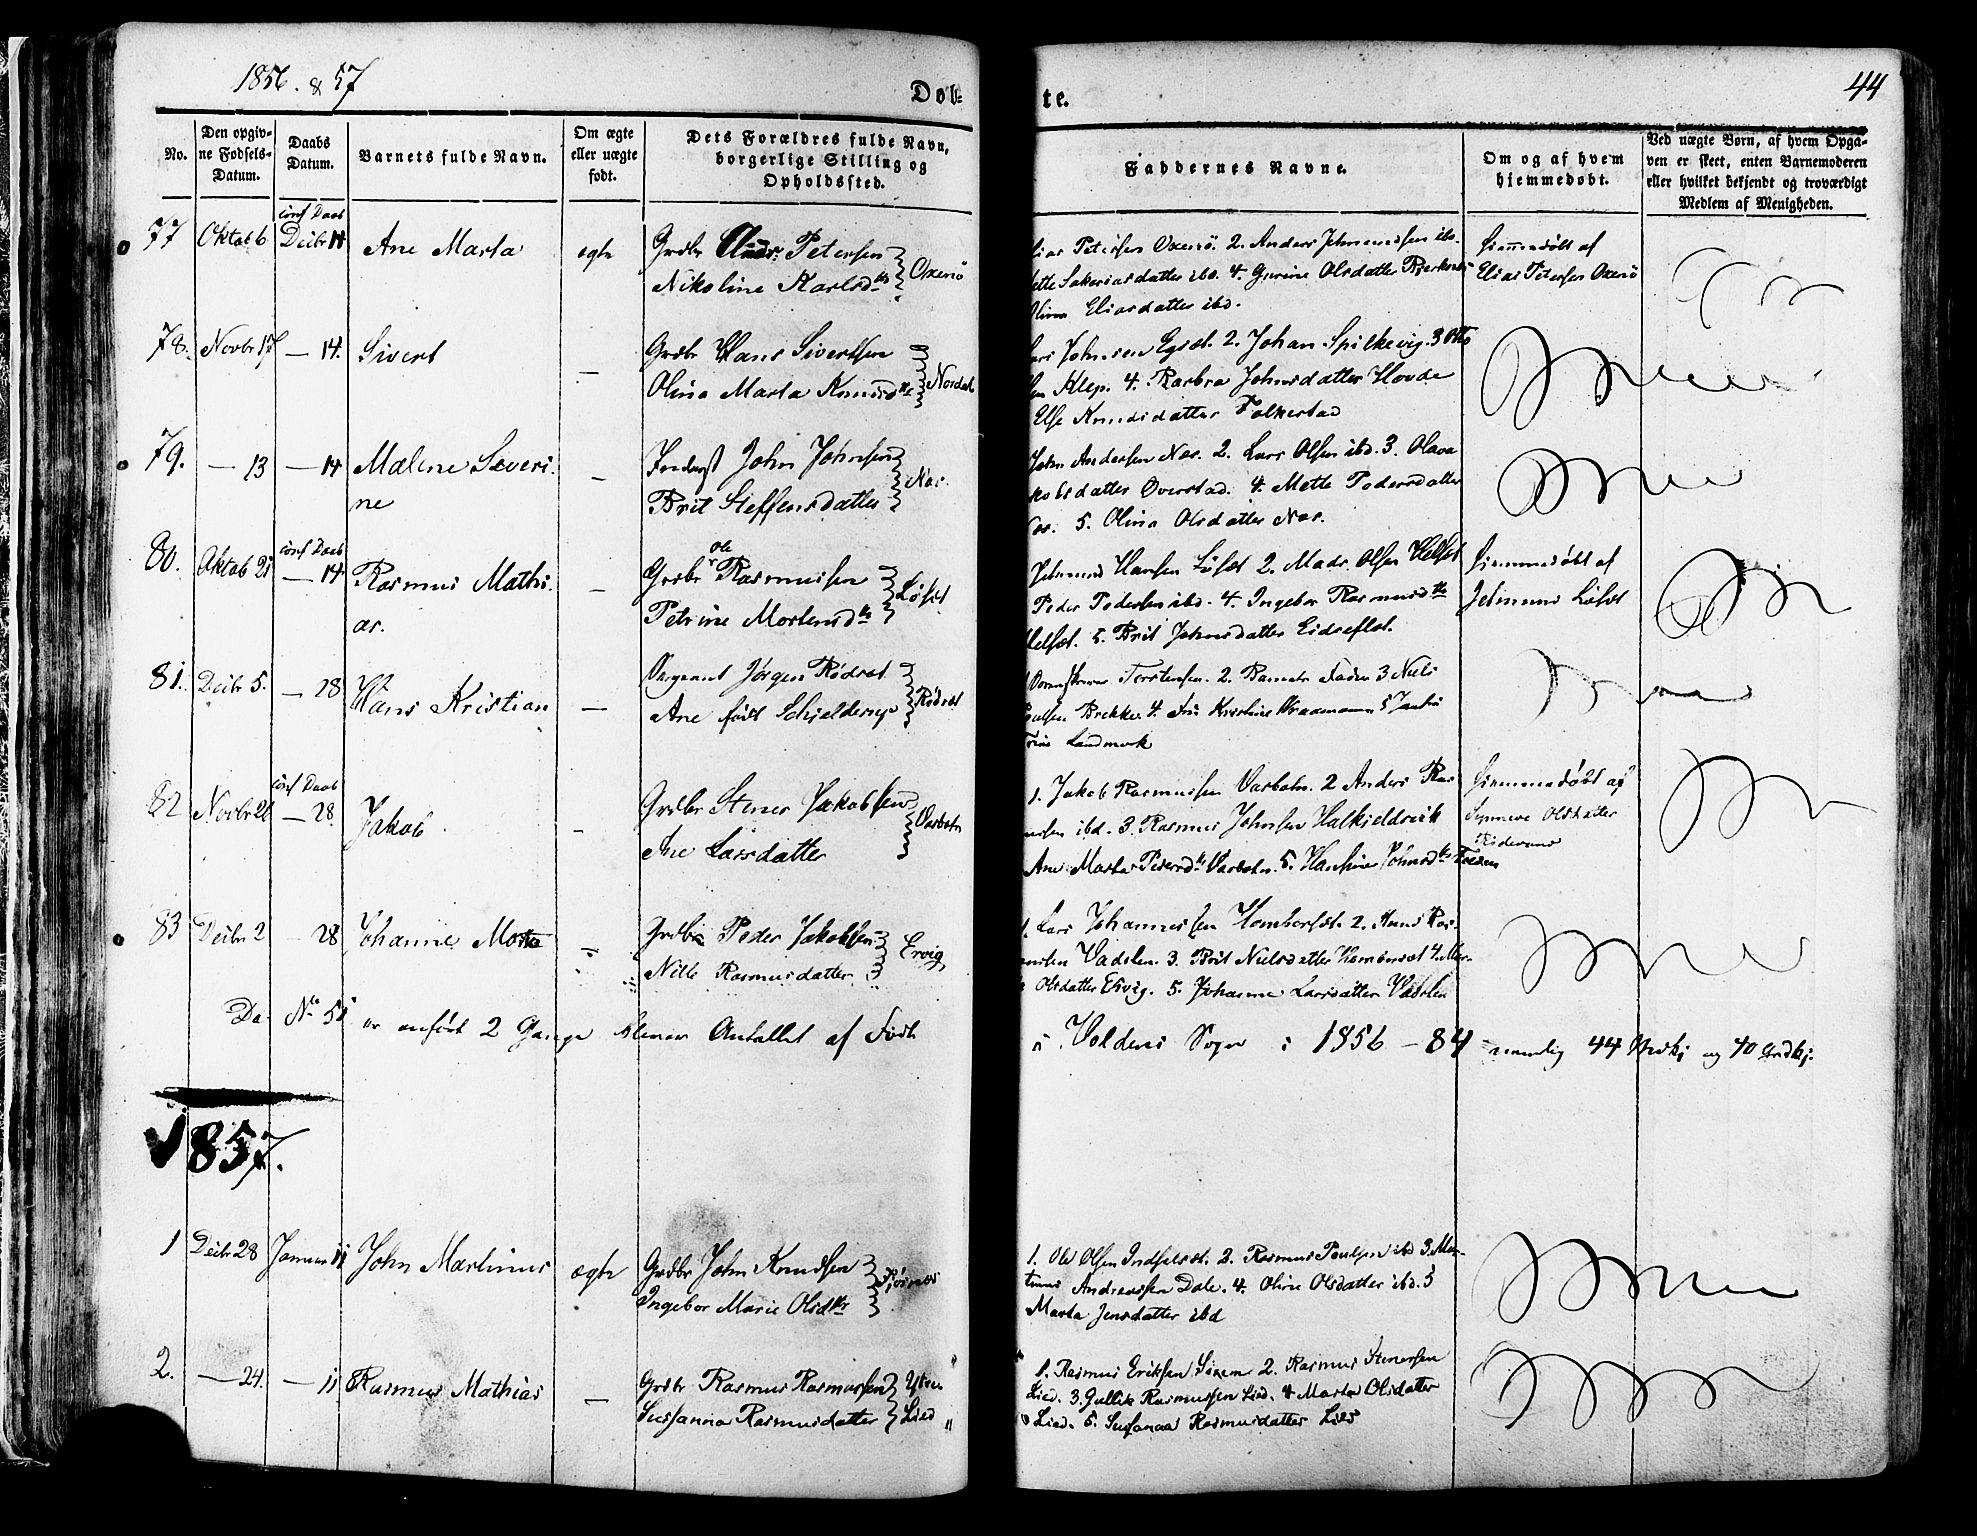 1856. & 57
Døb-
te.
44
No.
Den opgiv-
ne Fødsels-
Datum.
Daabs
Datum.
Barnets fulde Navn.
Om ægte
eller uægte
født.
Dets Forældres fulde Navn,
borgerlige Stilling og
Opholdssted.
Faddernes Navne.
Om og af hvem
hjemmedøbt.
Ved uægte Børn, af hvem Opga-
ven er skeet, enten Barnemoderen
eller hvilket bekjendt og troværdigt
Medlem af Menigheden.
conf Daab
77 Oktob 6 Decbr 14 Ane Marta ægte Grdbr Petersen
Nikoline Karlsdtr Oxenø
lias Petersen Oxenø. 2. Anders Jetmundsen ibd.
ette Sakariasdatter ibd. 4. Gurine Olsdatter Bjerknes
Eliasdatter ibd.
Hjemmedøbt af
Elias Petersen Oxenø
78. Novbr 17 — 14. Sivert — Grdbr Hans Sivertsen
Olina Marta Knudsdtr Nordal
ars Johnsen Egset. 2. Johan Spilkevig. 3 Otto
Klep. 4. Barbra Johnsdatter Hovde
Else Knudsdatter Folkestad
79. — 13 — 14 Malene Severi-
ne — Inderst John Johnsen
Brit Steffensdatter Nær.
John Andersen Nær. 2. Lars Olsen ibd. 3. Olava
kobsdatter Øverstad. 4. Mette Pedersdatter
5. Olina Olsdatter Nær.
conf Daab
80. Oktob 21 — 14 Rasmus Mathi-
as. — Grdbr Ole Rasmussen
Petrine Mortensdtr Løset
Jetmund Hansen Løset 2. Mads Olsen Helset
Peder Pedersen ibd. 4. Ingebor Rasmusdtr
Helset. 5. Brit Johnsdatter Eidseflot.
Hjemmedøbt af
Jetmund Løset
81. Decbr 5. — 28 Hans Kristian — Sergeant Jørgen Rødset
Ane født Schjelderup Rødset
Torstensen. 2. 3 Niels
Brekke. 4. Fru Kristine 5 Jomfru
Trine Landmark
conf Daab
82 Novbr 26 — 28. Jakob — Grdbr Stener Jakobsen
Ane Larsdatter Varbotn
1. Jakob Rasmussen Varbotn. 2 Anders Ras-
mussen ibd. 3. Rasmus Johnsen Halkjeldsvik
Ane Marta Pedersdtr Varbotn. 5. Hansine Johnsdtr
Hjemmedøbt af
Synneve Olsdatter
83 Decbr 2 — 28 Johanne Marta — Grdbr Peder Jakobsen
Nille Rasmusdatter Ervig
1. Lars Johannessen Homborset. 2. Knud Ras-
mussen Vadsten. 3. Brit Nielsdatter Homborset 4. Mar-
Olsdatter Ervig. 5. Johanne Larsdatter Vadsten
Da No 51 er anført 2 Gange bliver Antallet af Fødte
i Voldens Sogn i 1856 – 84 nemlig 44 Mdkj og 40 Qvdkj.
1857.
1 Decbr 28 Januar 11 John Martinus ægte Grdbr John Knudsen
Ingebor Marie Olsdtr
1. Ole Olsen Indselset. 2. Rasmus Poulsen ibd 3. Mar-
tinus Andreassen Dale. 4. Oline Olsdatter ibd. 5
Marta Jensdatter ibd
2. — 24. — 11 Rasmus Mathias — Grdbr Rasmus Rasmussen
Susanna Rasmusdatter Ytre Lied
1. Rasmus Eriksen 2. Rasmus Stenersen
Lied. 3. Gullik Rasmussen Lied. 4 Marta Olsdatter
Lied. 5. Susanna Rasmusdatter Lied